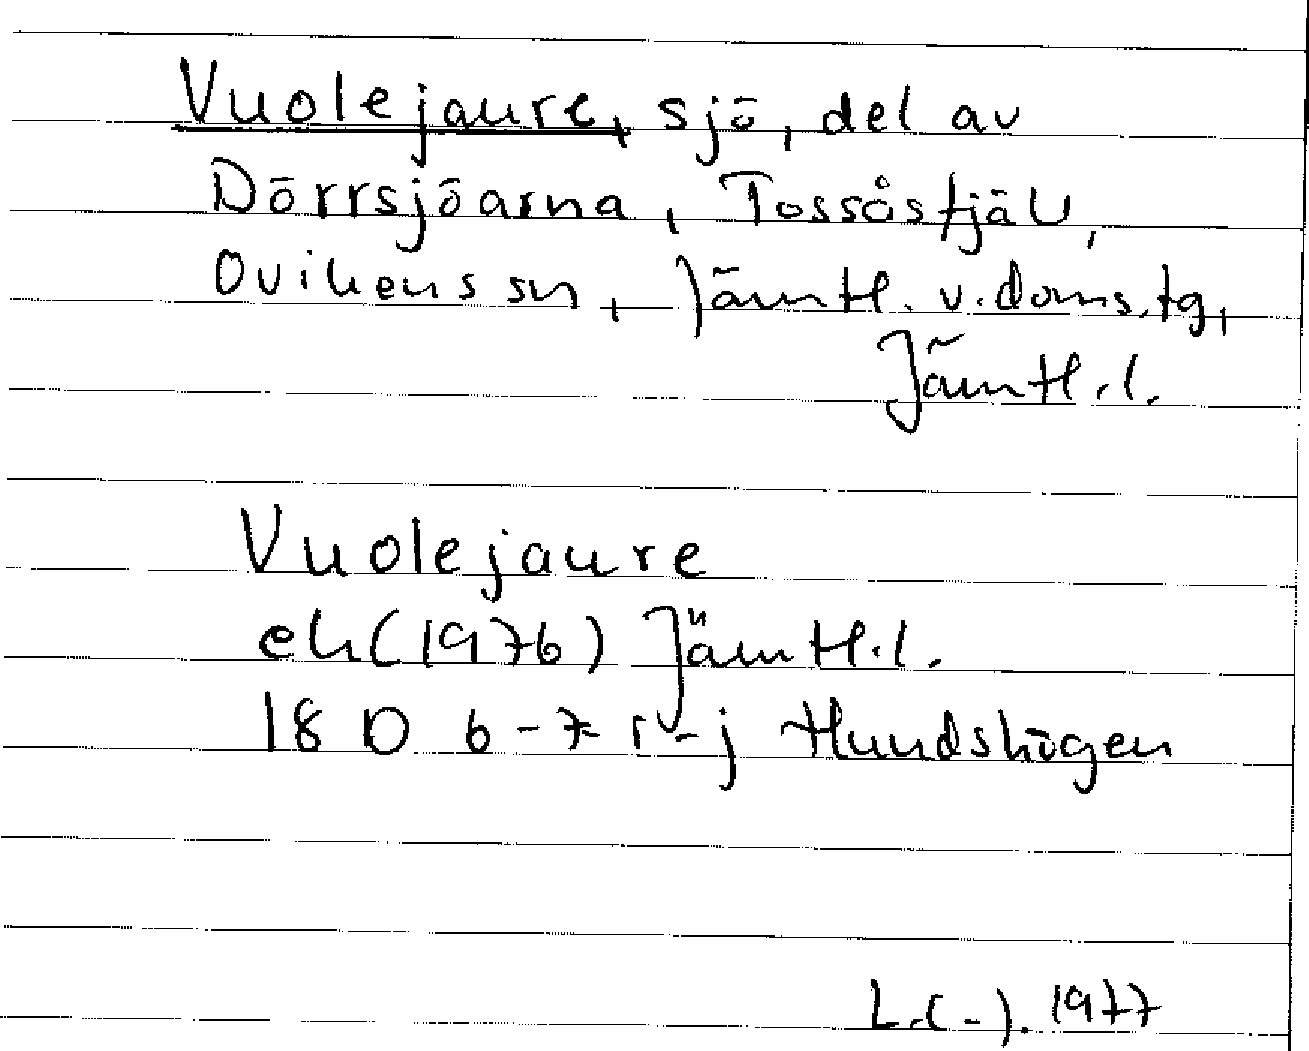 Vuolejaure, sjö, del av
Dörrsjöarna, Tossåsfjäll,
Ovikens sn, Jämtl. v. doms. tg,
Jämtl. l.
Vuolejaure
ek (1976) Jämtl. l.
18 D 6-7 i-j Hundshögen
L.(-). 1977